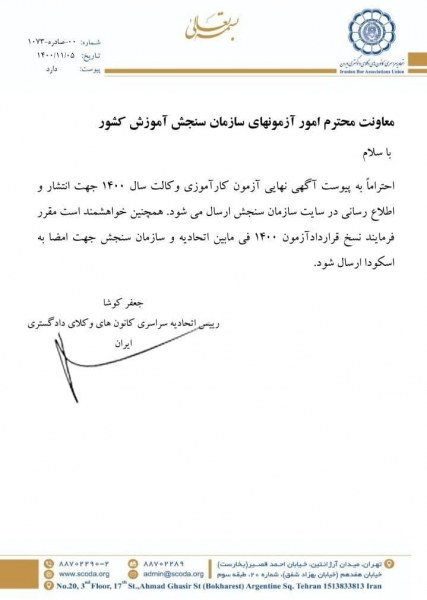 بسمه تعالی
اتحادیه سراسری کانون‌های وکلای دادگستری ایران
Iranian Bar Associations Union
شماره: ۰۰-صادره-۱۰۷۳
تاریخ: ۱۴۰۰/۱۱/۰۵
پیوست: دارد
معاونت محترم امور آزمونهای سازمان سنجش آموزش کشور
با سلام
احتراماً به پیوست آگهی نهایی آزمون کارآموزی وکالت سال ۱۴۰۰ جهت انتشار و
اطلاع رسانی در سایت سازمان سنجش ارسال می شود. همچنین خواهشمند است مقرر
فرمایند نسخ قراردادآزمون ۱۴۰۰ فی مابین اتحادیه و سازمان سنجش جهت امضا به
اسکودا ارسال شود.
جعفر کوشا
رییس اتحادیه سراسری کانون های وکلای دادگستری
ایران
تهران، میدان آرژانتین، خیابان احمد قصیر(بخارست)
خیابان هفدهم (خیابان بهزاد شفق)، شماره ۲۰، طبقه سوم
۸۸۷۰۲۲۸۹
admin@scoda.org
۸۸۷۰۲۲۹۰-۲
www.scoda.org
No.20, 3rd Floor, 17th St.,Ahmad Ghasir St (Bokharest) Argentine Sq. Tehran 1513833813 Iran